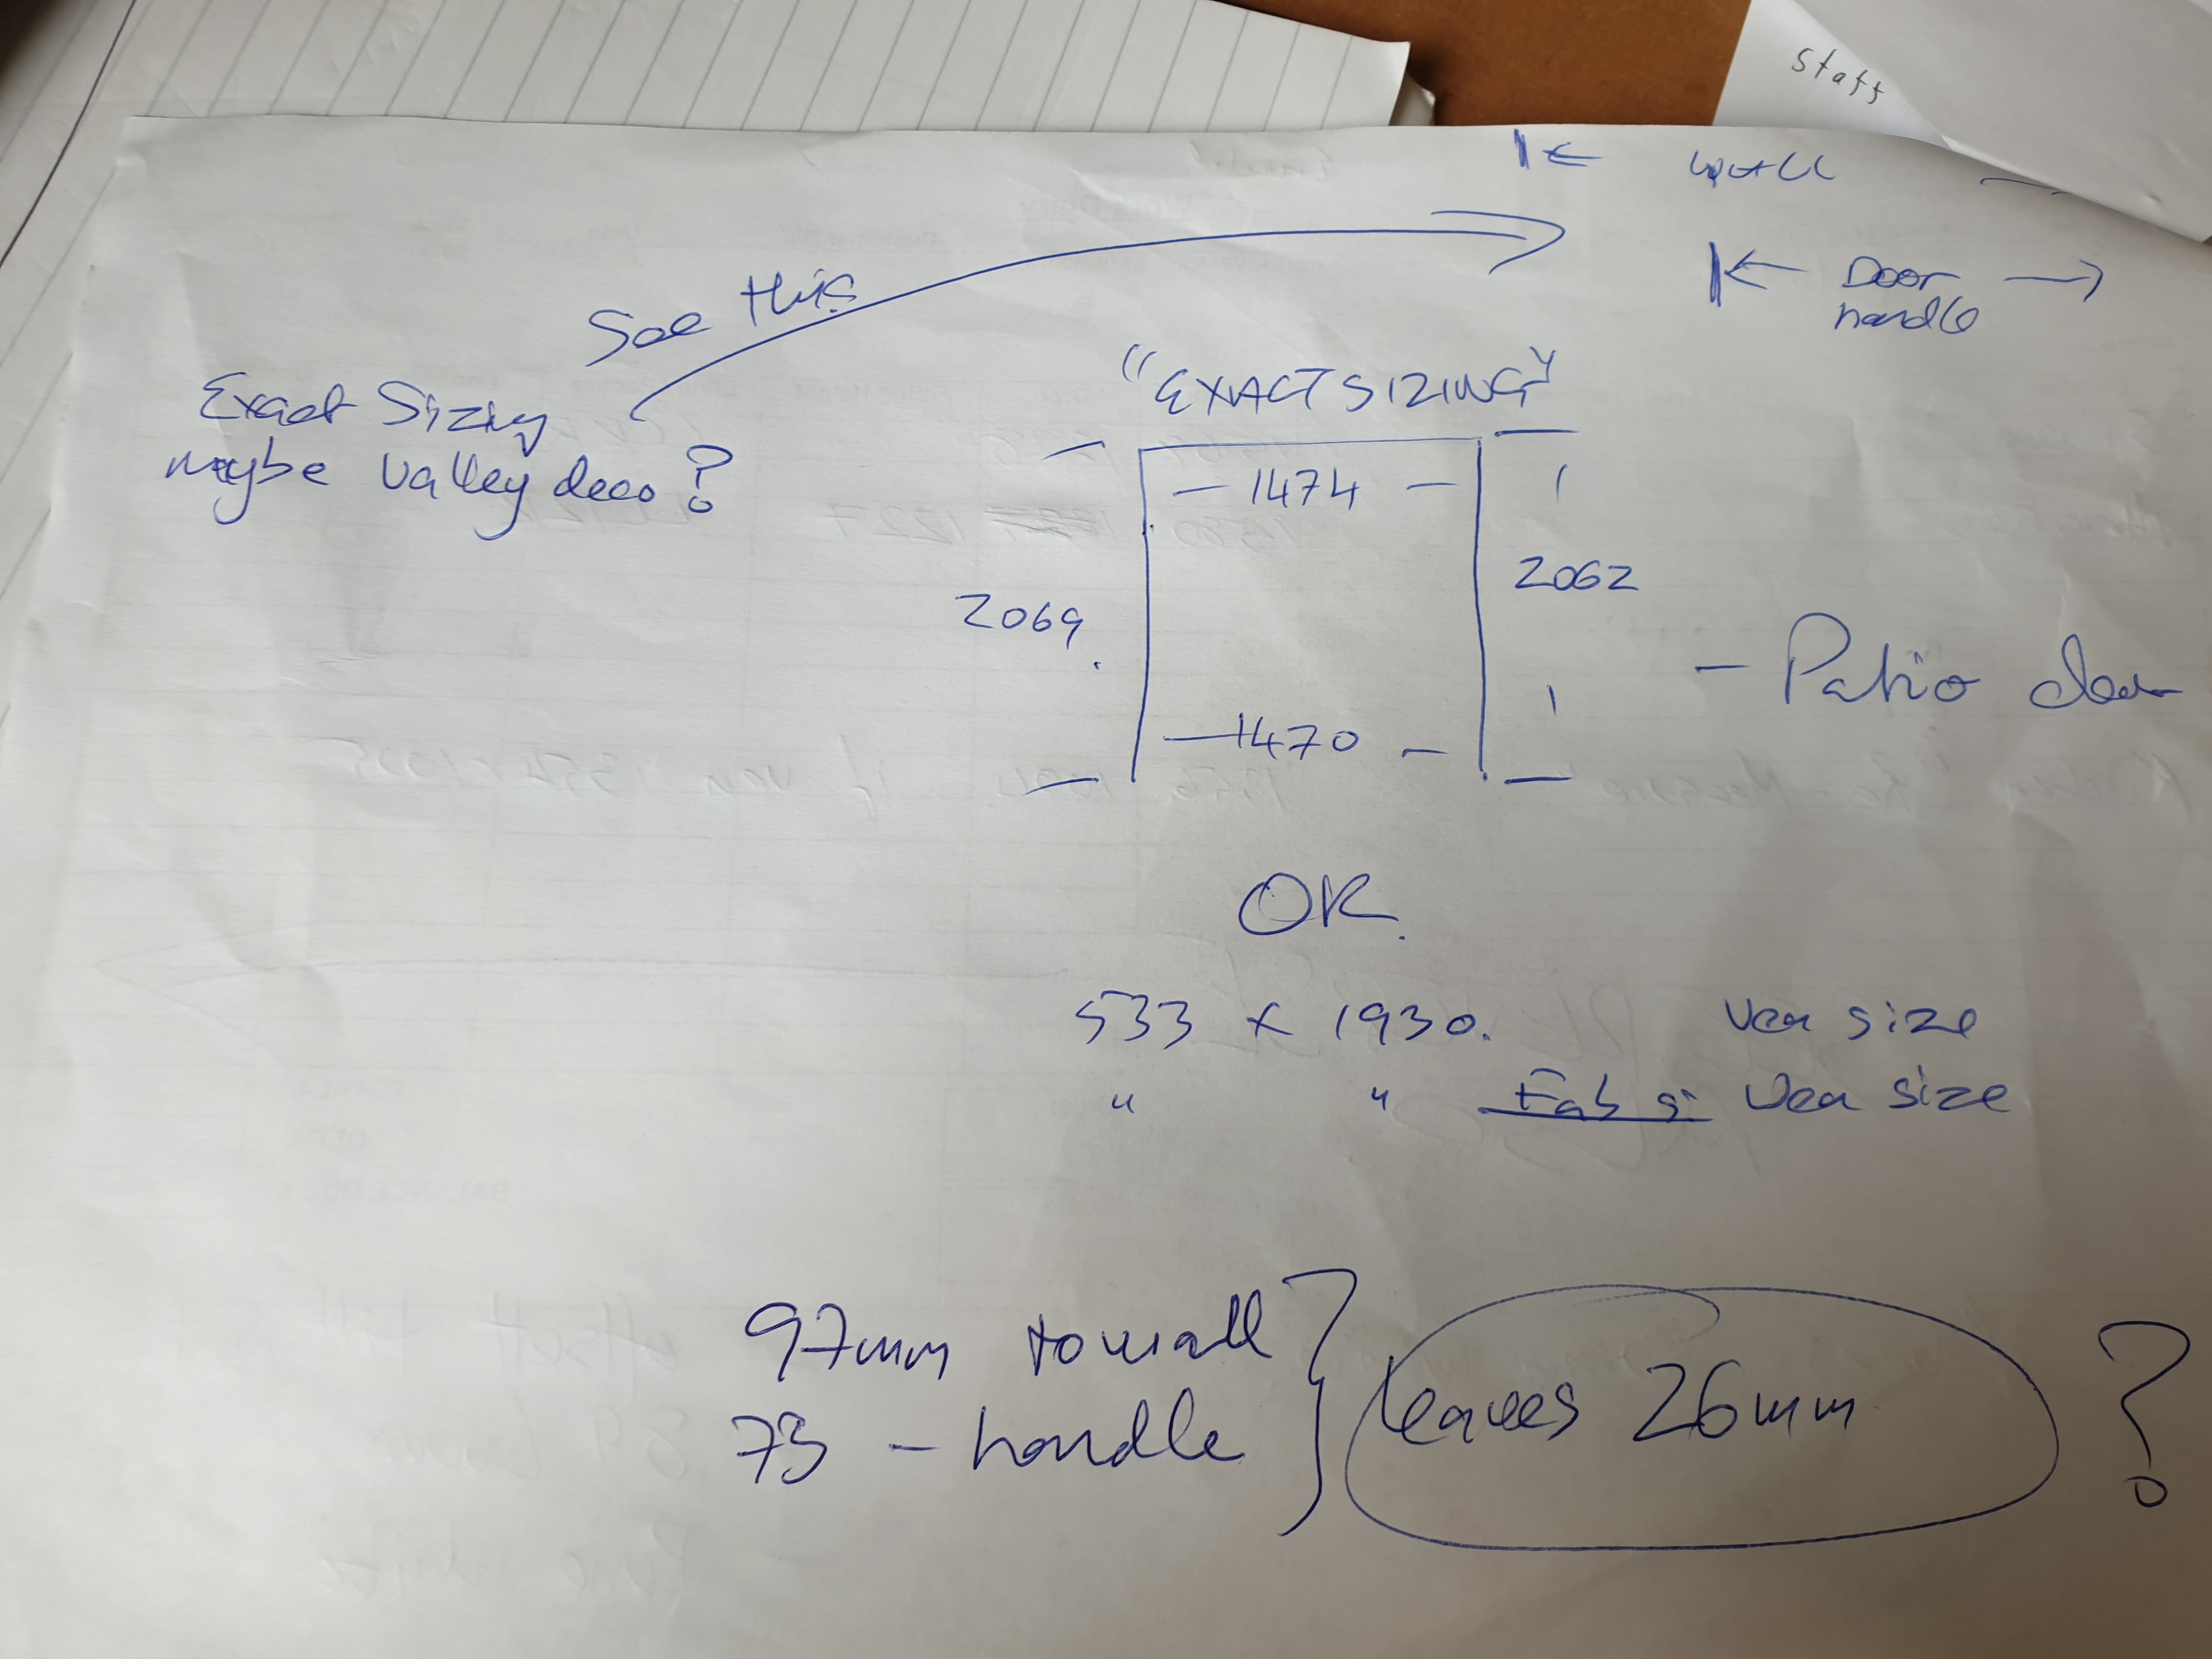 staff
wall
Door
handle
See this
"EXACT SIZING"
Exact Sizing
maybe valley deco?
1474
2062
2069.
- Patio door
1470
OR.
533 x 1930. Ven size
" " Fab si Ven size
97mm to wall
73 - handle
leaves 26mm ?